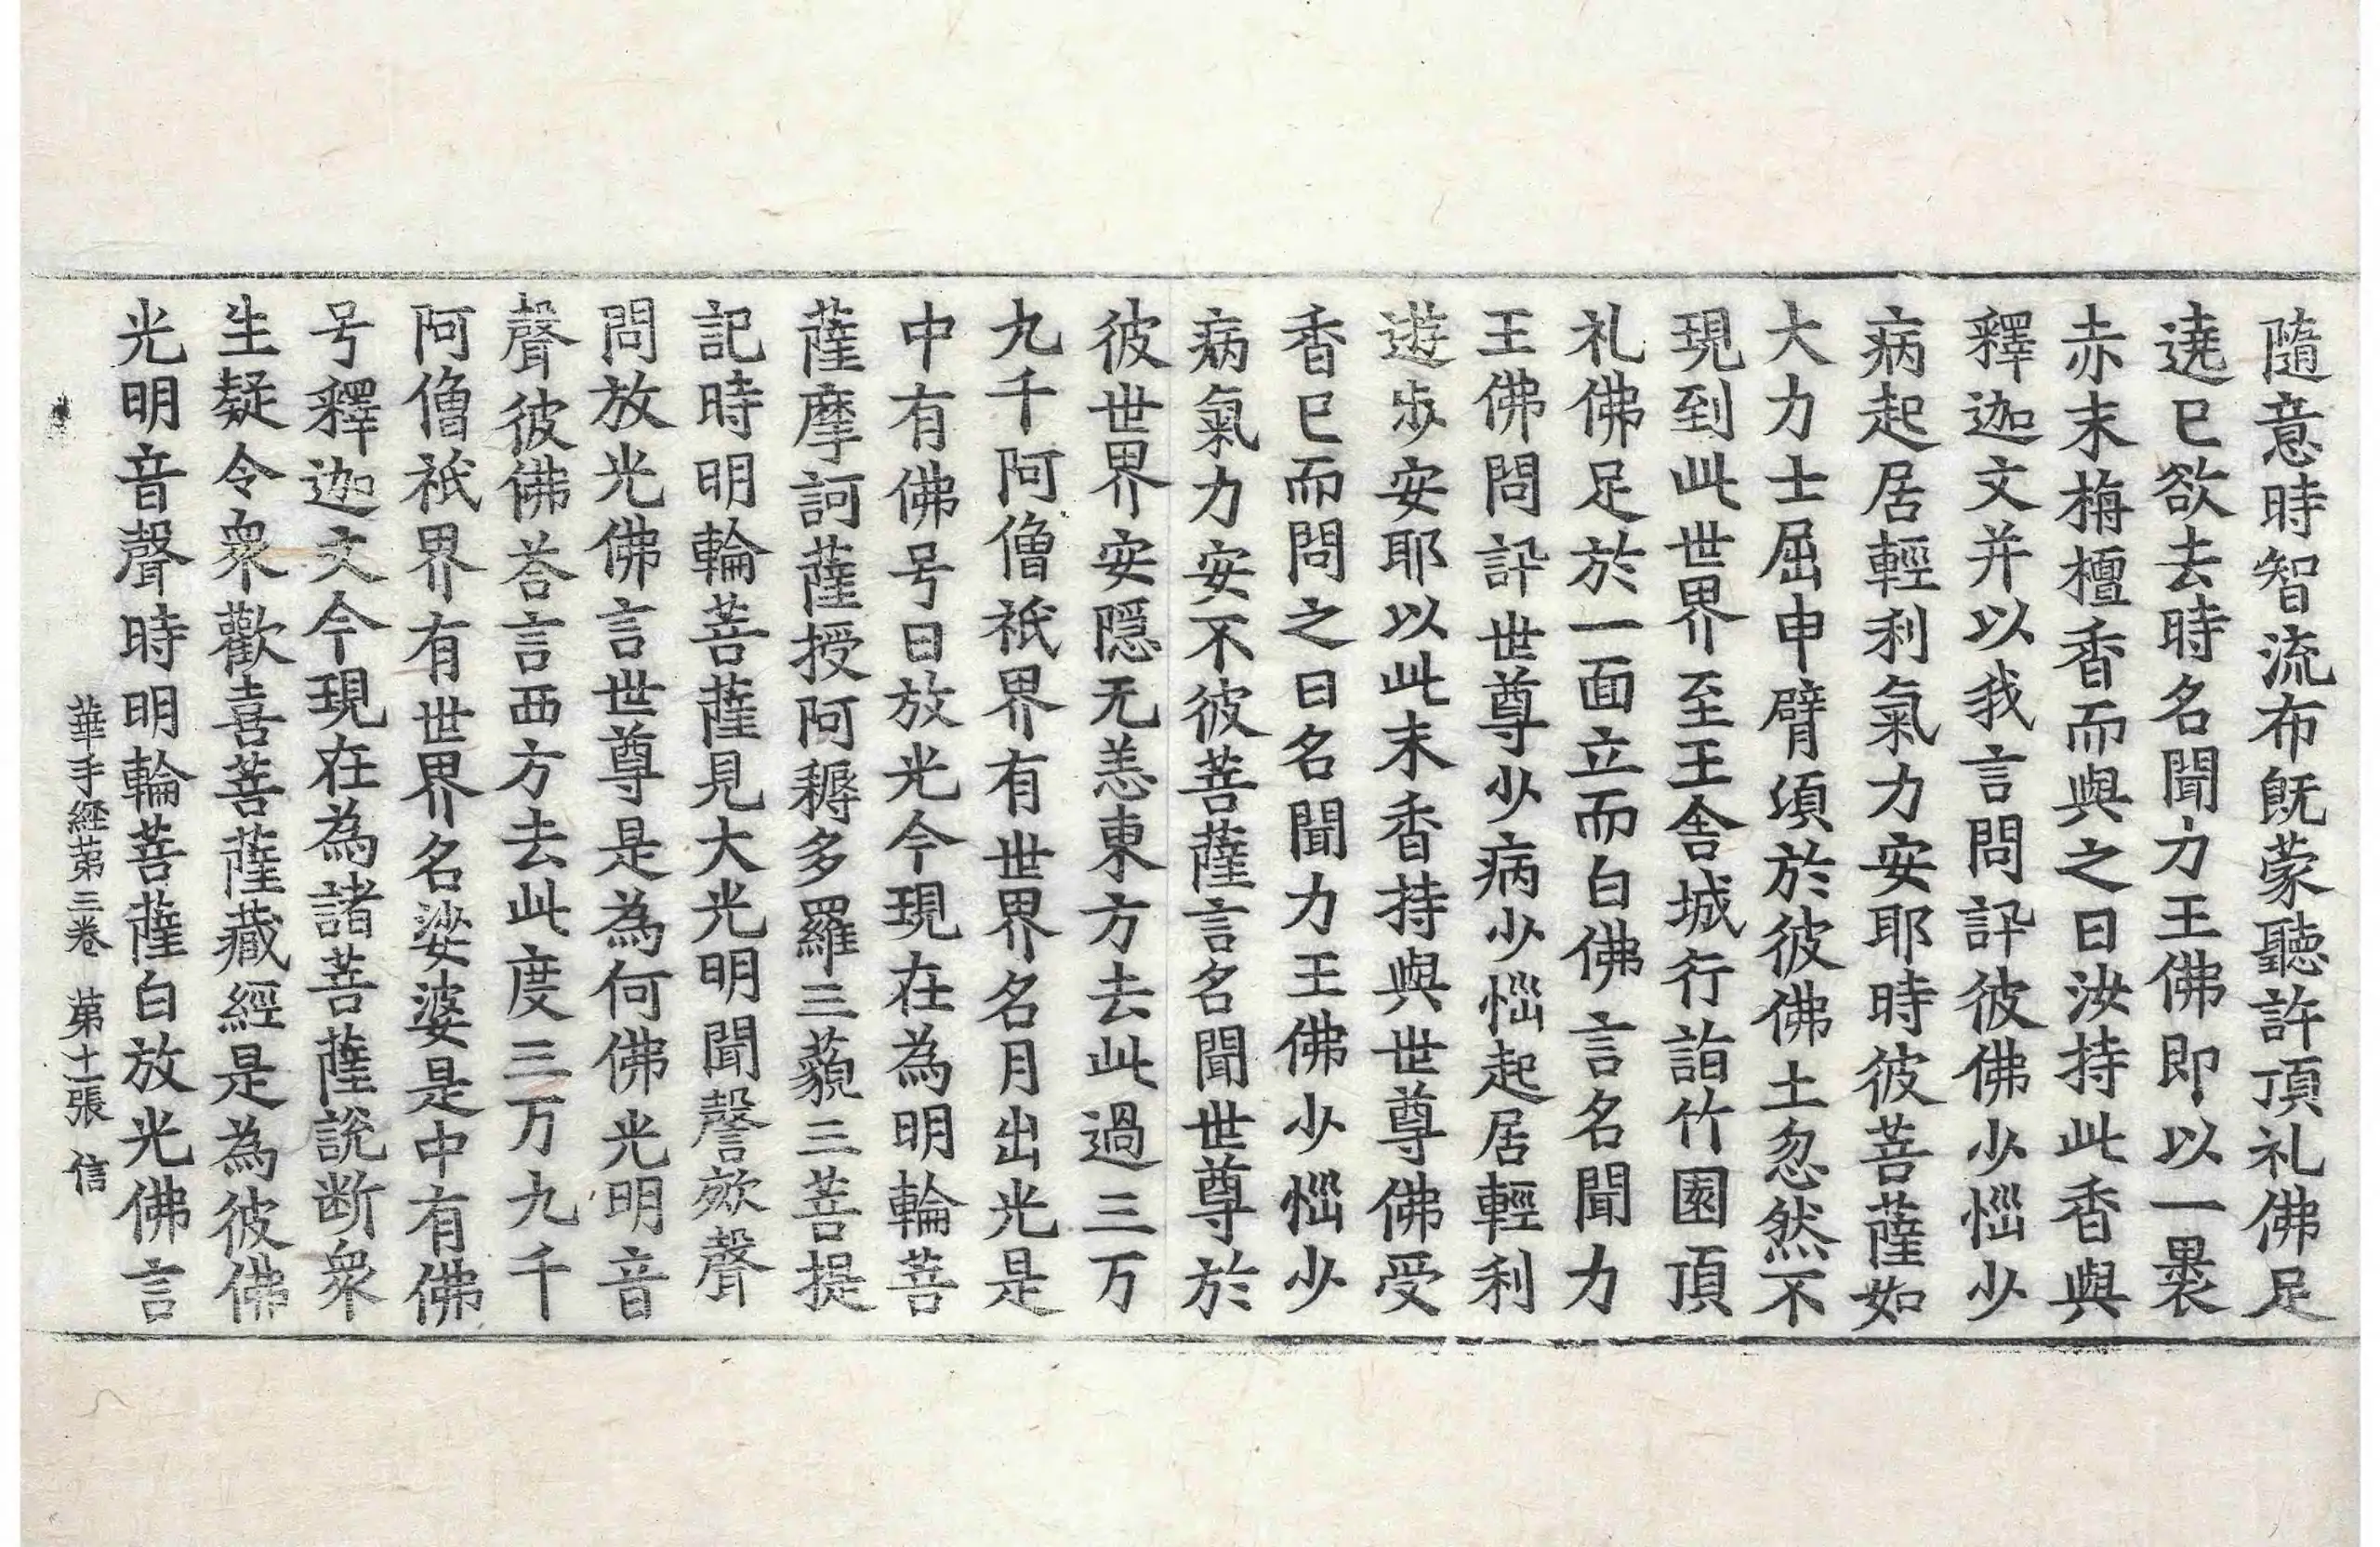 隨意時智流布旣蒙聽許頂礼佛足
遶已欲去時名聞力王佛即以一裹
赤末栴檀香而與之曰汝持此香與
釋迦文并以我言問訊彼佛少惱少
病起居輕利氣力安耶時彼菩薩如
大力士屈申臂頃於彼佛土忽然不
現到此世界至王舍城行詣竹園頂
礼佛足於一面立而白佛言名聞力
王佛問訊世尊少病少惱起居輕利
遊步安耶以此末香持與世尊佛受
香已而問之曰名聞力王佛少惱少
病氣力安不彼菩薩言名聞世尊於
彼世界安隱无恙東方去此過三万
九千阿僧祇界有世界名月出光是
中有佛号曰放光今現在為明輪菩
薩摩訶薩授阿耨多羅三藐三菩提
記時明輪菩薩見大光明聞謦欬聲
問放光佛言世尊是為何佛光明音
聲彼佛荅言西方去此度三万九千
阿僧祇界有世界名娑婆是中有佛
号釋迦文今現在為諸菩薩說断衆
生疑令衆歡喜菩薩藏經是為彼佛
光明音聲時明輪菩薩白放光佛言
華手經第三卷 第十一張 信